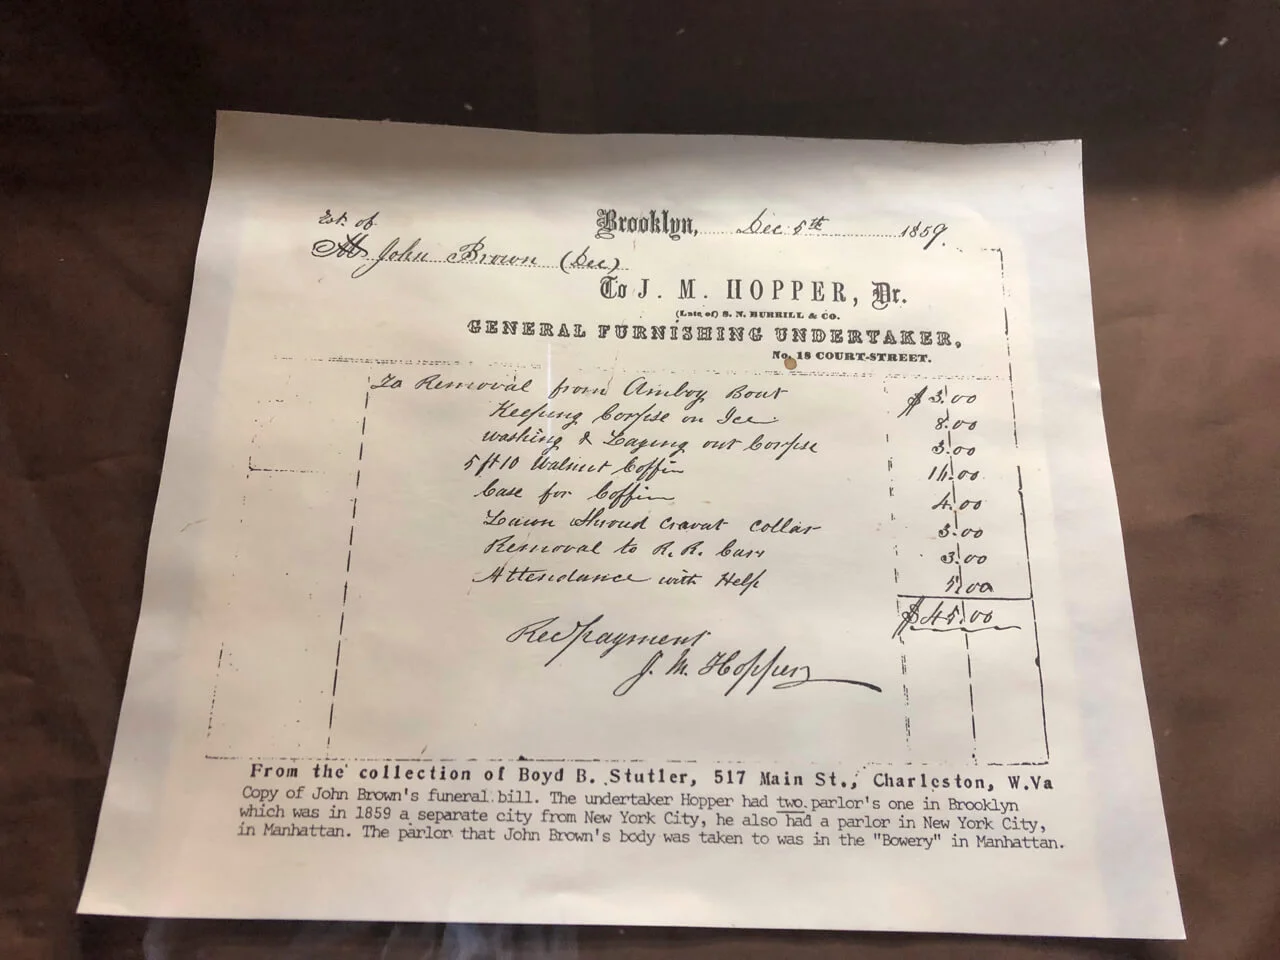 Est. of
Brooklyn, Dec 5th 1859.
John Brown (Dec)
To J. M. HOPPER, Dr.
(Late of) S. N. BURRILL & CO.
GENERAL FURNISHING UNDERTAKER,
No. 18 COURT-STREET.
To Removal from Amboy Boat $3.00
Keeping Corpse on Ice 8.00
washing & Laying out Corpse 3.00
5 ft 10 Walnut Coffin
Case for Coffin 4.00
Lawn Shroud Cravat Collar 3.00
Removal to R. R. Cars 3.00
Attendance with Help 5.00
$45.00
Recd payment
J. M. Hopper
From the collection of Boyd B. Stutler, 517 Main St., Charleston, W.Va
Copy of John Brown's funeral bill. The undertaker Hopper had two parlor's one in Brooklyn
which was in 1859 a separate city from New York City, he also had a parlor in New York City,
in Manhattan. The parlor that John Brown's body was taken to was in the "Bowery" in Manhattan.